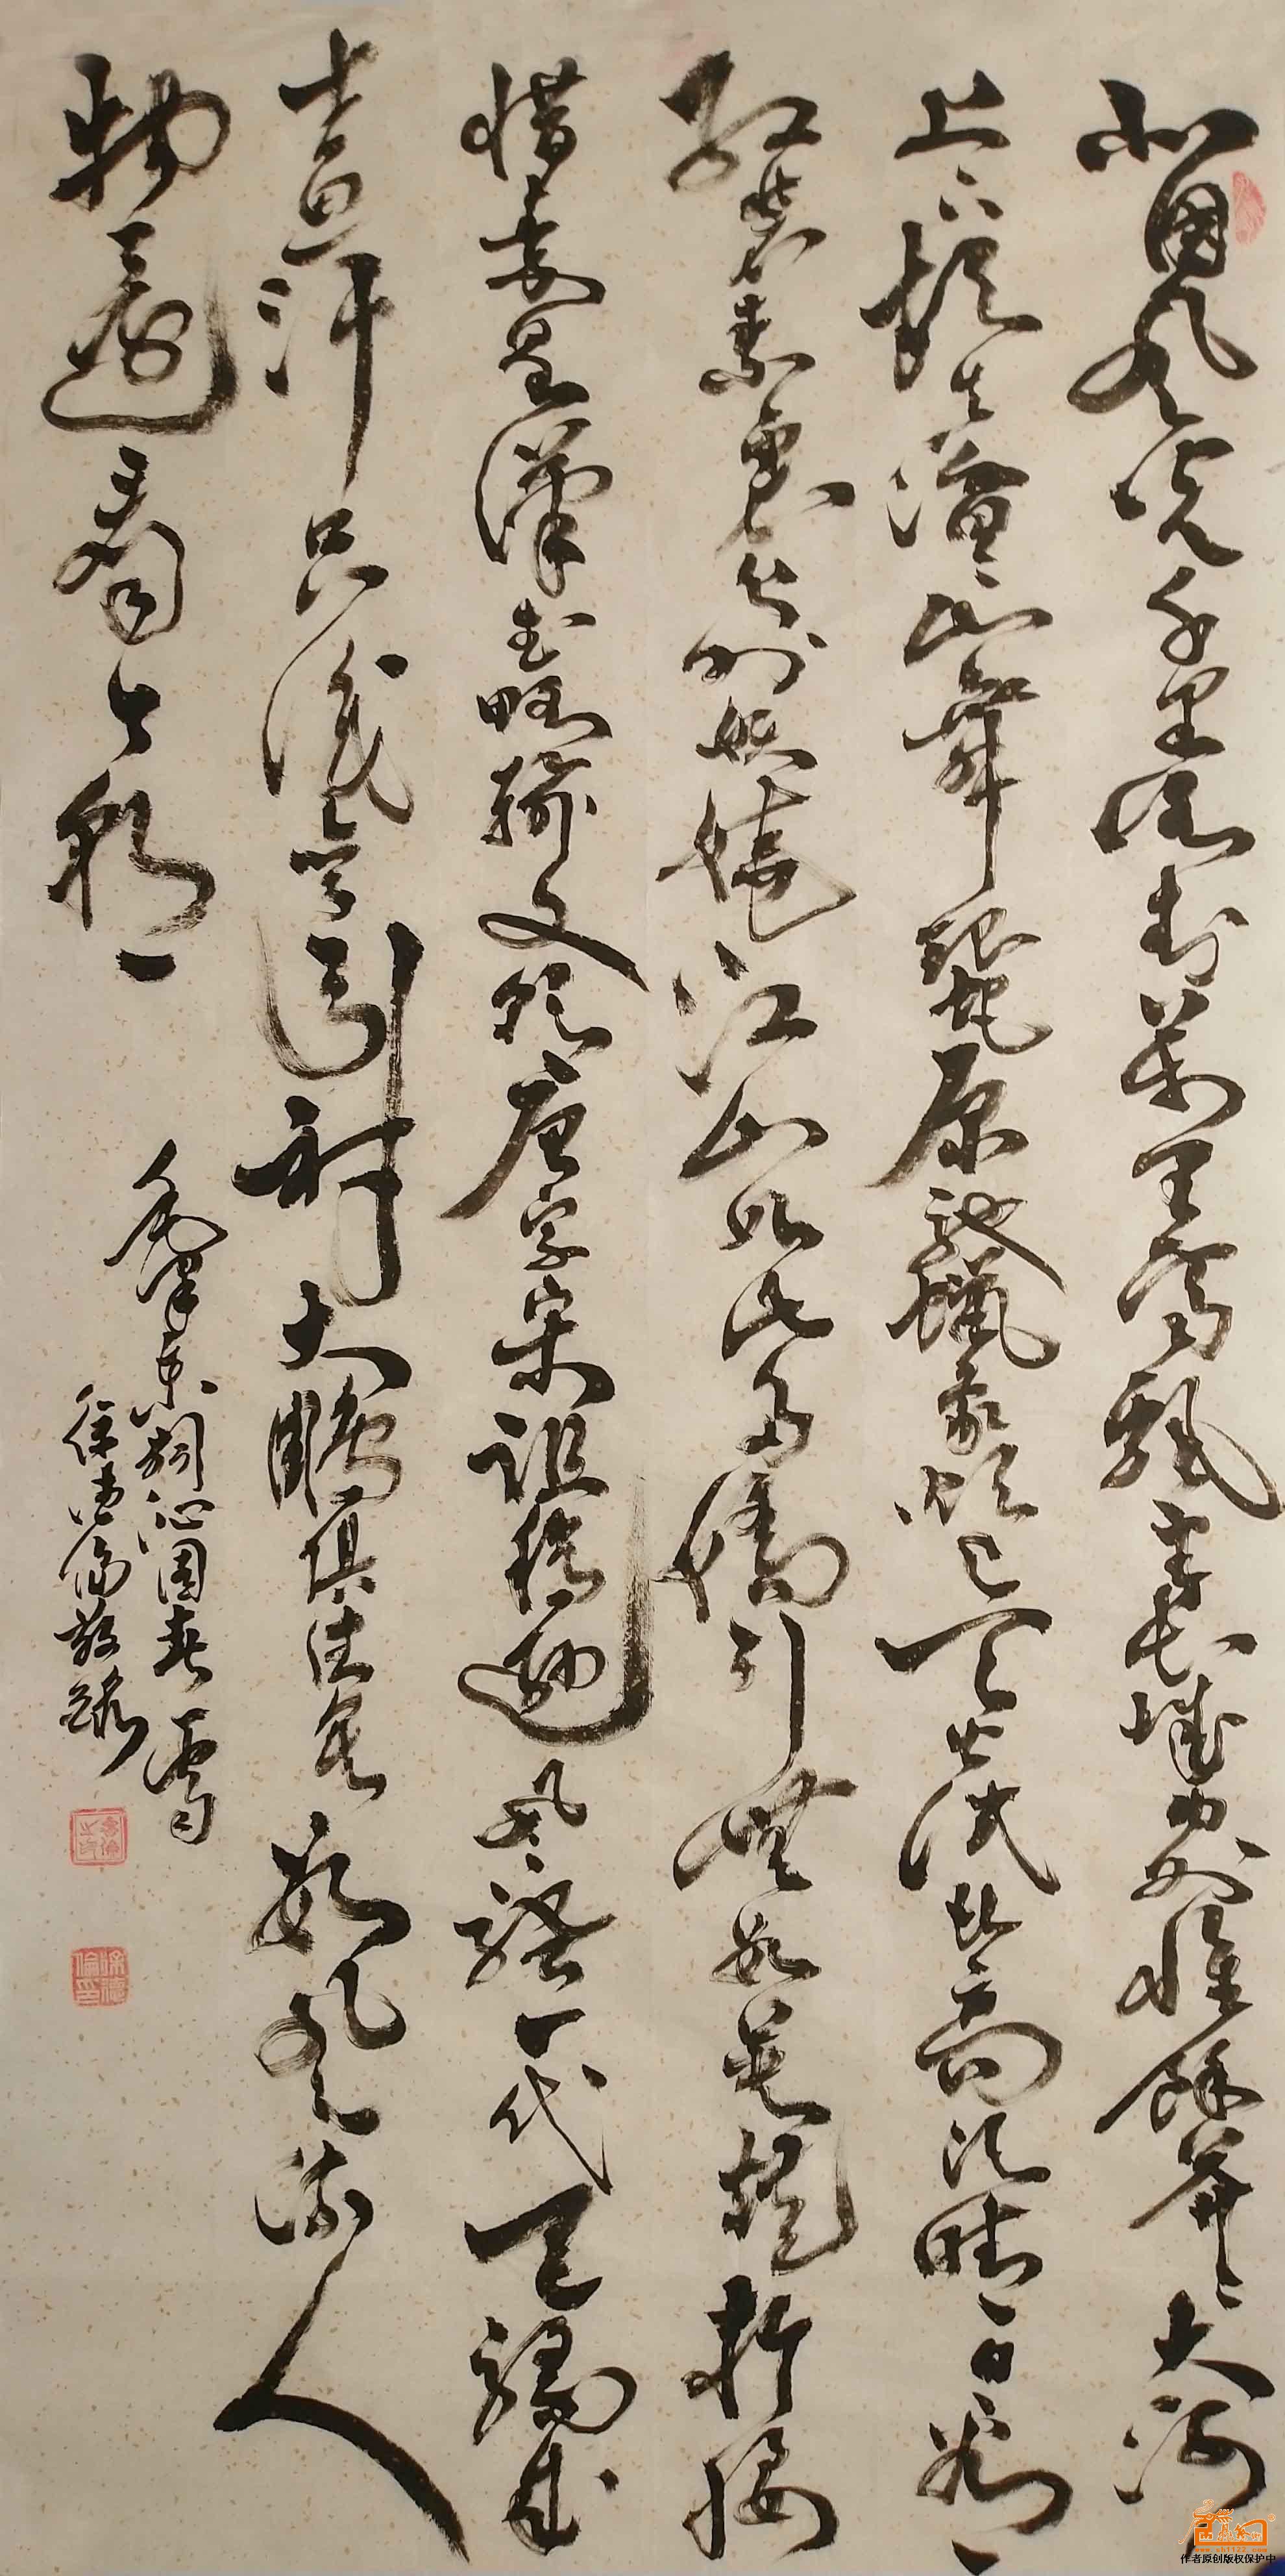 北国风光千里冰封万里雪飘望长城内外惟馀莽莽大河
上下顿失滔滔山舞银蛇原驰蜡象欲与天公试比高须晴日看
红装素裹分外妖娆江山如此多娇引无数英雄折腰
惜秦皇汉武略输文采唐宗宋祖稍逊风骚一代天骄成
吉思汗只识弯弓射大雕俱往矣数风流人
物还看今朝
毛泽东词沁园春雪
徐德伦敬录
徐德伦印
www.sh1122.com
作者原创版权保护中